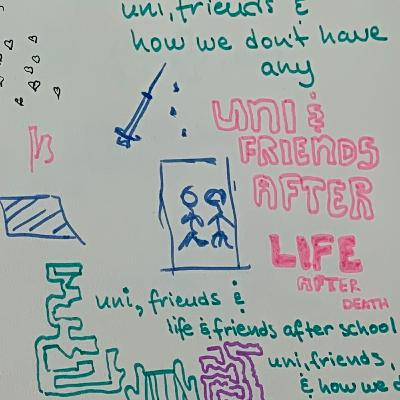 uni, friends &
how we don't have
any
UNI &
FRIENDS
AFTER
LIFE
AFTER
DEATH
uni, friends &
life & friends after school
uni, friends,
& how we d